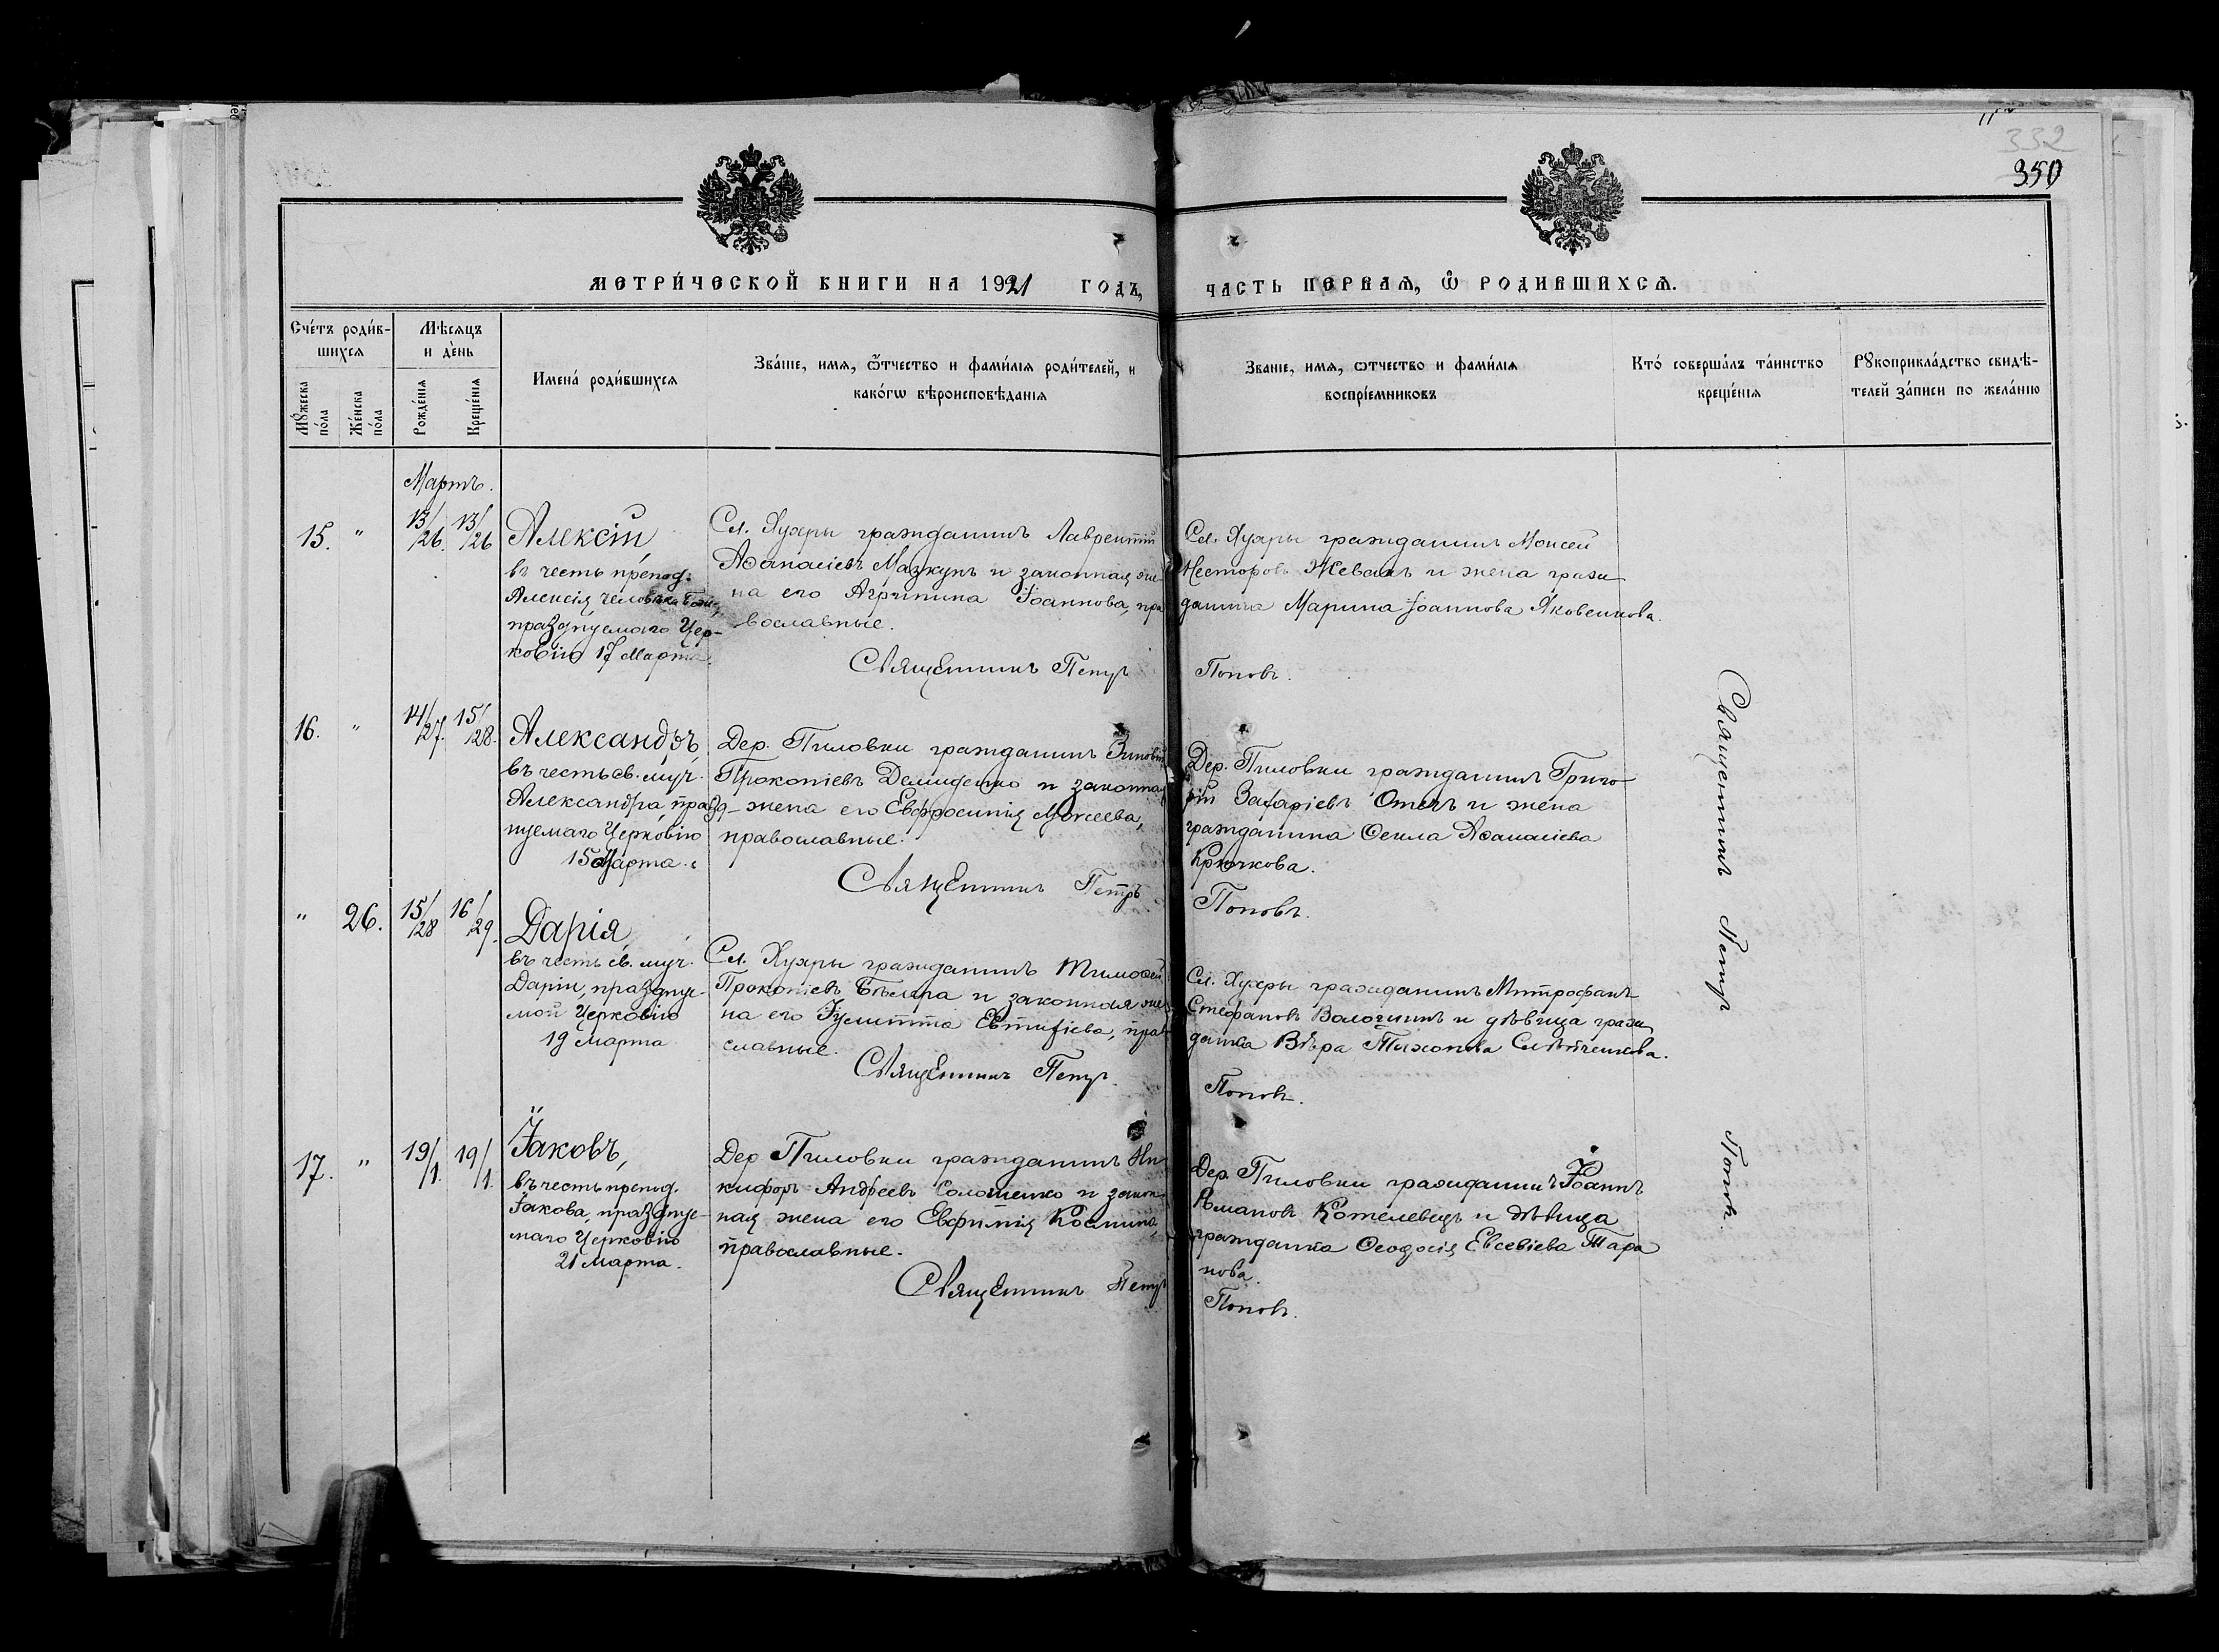 332
350
МЕТРИ́ЧЕСКОЙ КНИГИ НА 1921 ГОДЪ,
ЧАСТЬ ПЕРВАѦ, Ѿ РОДИВШИХСѦ.
Счéтъ роди́в-
шихсѧ
Мѹ́жеска
по́ла
Же́нска
по́ла
Мѣ́сѧцъ
и де́нь
Рожде́нїѧ
Креще́нїѧ
Имена́ роди́вшихсѧ
Зва́нїе, имѧ, ѿтчество и фами́лїѧ роди́телей, и
како́гѡ вѣроисповѣ́данїѧ
Званїе, имѧ, ѿтчество и фами́лїѧ
воспрїе́мниковъ
Кто́ соверша́лъ та́инство
креще́нїѧ
Рѹкоприкла́дство свидѣ́-
телей за́писи по жела́нїю
Мартъ.
15. "
13/26. 13/26
Алексій,
въ честь препод.
Алексія человѣка Бож.,
празднуемаго Цер-
ковію 17 Марта.
Сл. Хухры гражданинъ Лаврентій
Аѳанасіевъ Мазкунъ и законная же-
на его Агрипина Іоаннова, пра
вославные.
Священникъ Петръ
Сл. Хухры гражданинъ Моисей
Несторовъ Жеванъ и жена граж
данина Марина Іоаннова Яковенкова.
Поповъ.
16. "
14/27. 15/28.
Александръ,
въ честь св. муч.
Александра, празд-
нуемаго Церковію
15 Марта.
Дер. Пиловки гражданинъ Зиновій
Прокопіевъ Демиденко и законная
жена его Евфросинія Моисеева,
православные.
Священникъ Петръ
Дер. Пиловки гражданинъ Григо
рій Захаріевъ Отечъ и жена
гражданина Ѳекла Аѳанасіева
Крючкова.
Поповъ.
" 26.
15/28 16/29.
Дарія,
въ честь св. муч.
Даріи, праздnуе-
мой Церковію
19 Марта
Сл. Хухры гражданинъ Тимоѳей
Прокопіевъ Бѣляра и законная же
на его Іулитта Евтихіева, право
славные.
Священникъ Петръ
Сл. Хухры гражданинъ Митрофанъ
Стефановъ Волочинъ и дѣвица граж
данка Вѣра Тихонова Слѣпченкова.
Поповъ.
17. "
19/1. 19/1.
Іаковъ,
въ честь препод.
Іакова, празднуе-
маго Церковію
21 Марта.
Дер Пиловки гражданинъ Ни
кифоръ Андреевъ Солошенко и закон
ная жена его Евфимія Космина,
православные.
Священникъ Петръ
Дер. Пиловки гражданинъ Іоаннъ
Романовъ Котелевецъ и дѣвица
гражданка Ѳеодосія Евсевіева Тара
нова.
Поповъ.
Священникъ Петръ Поповъ.